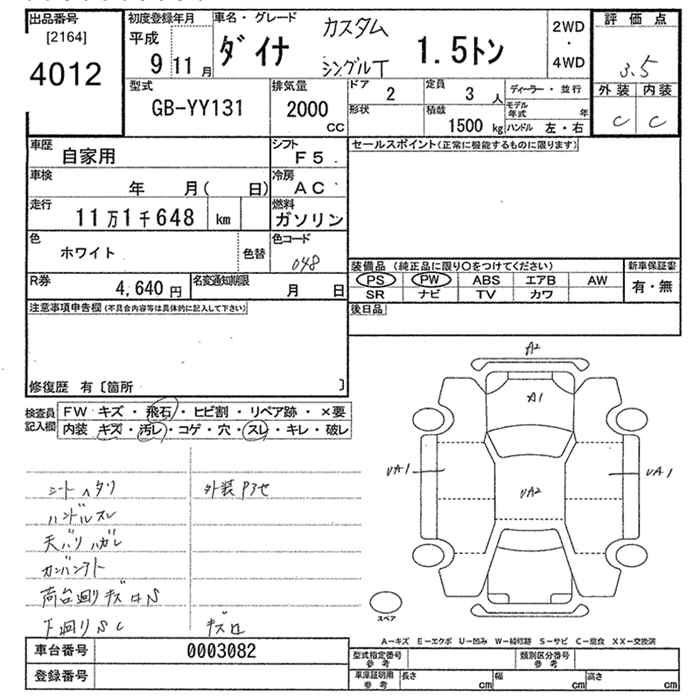 出品番号
[2164]
4012
初度登録年月
平成
9 11月
車名・グレード
ダイナ カスタム
シングルT
1.5トン
2WD
・
4WD
評価点
3.5
外装 内装
C C
型式
GB-YY131
排気量
2000
CC
ドア
2
形状
定員
3 人
積載
1500 kg
ディーラー・並行
モデル
年式 年
ハンドル 左・右
車歴
自家用
シフト
F5
車検
年 月( 日)
冷房
AC
走行
11万1千648 km
燃料
ガソリン
色
ホワイト
色替
色コード
048
R券
4,640 円
名変通知期限
月 日
セールスポイント(正常に機能するものに限ります)
装備品 (純正品に限り○をつけてください)
PS PW ABS エアB AW
SR ナビ TV カワ
新車保証書
有・無
後日品
注意事項申告欄(不具合内容等は具体的に記入して下さい)
修復歴 有〔箇所 〕
検査員
記入欄
FW キズ・飛石・ヒビ割・リペア跡・×要
内装 キズ・汚レ・コゲ・穴・スレ・キレ・破レ
シートヘタリ
外装アセ
ハンドルスレ
天バリハガレ
カンバンアト
荷台廻りキズロS
下廻りSC
キズロ
A2
A1
UA1
UA2
UA1
スペア
A-キズ E-エクボ U-凹み W-補修跡 S-サビ C-腐食 XX-交換済
車台番号
0003082
登録番号
型式指定番号
参考
類別区分番号
参考
車庫証明用
参考
長さ cm
幅 cm
高さ cm